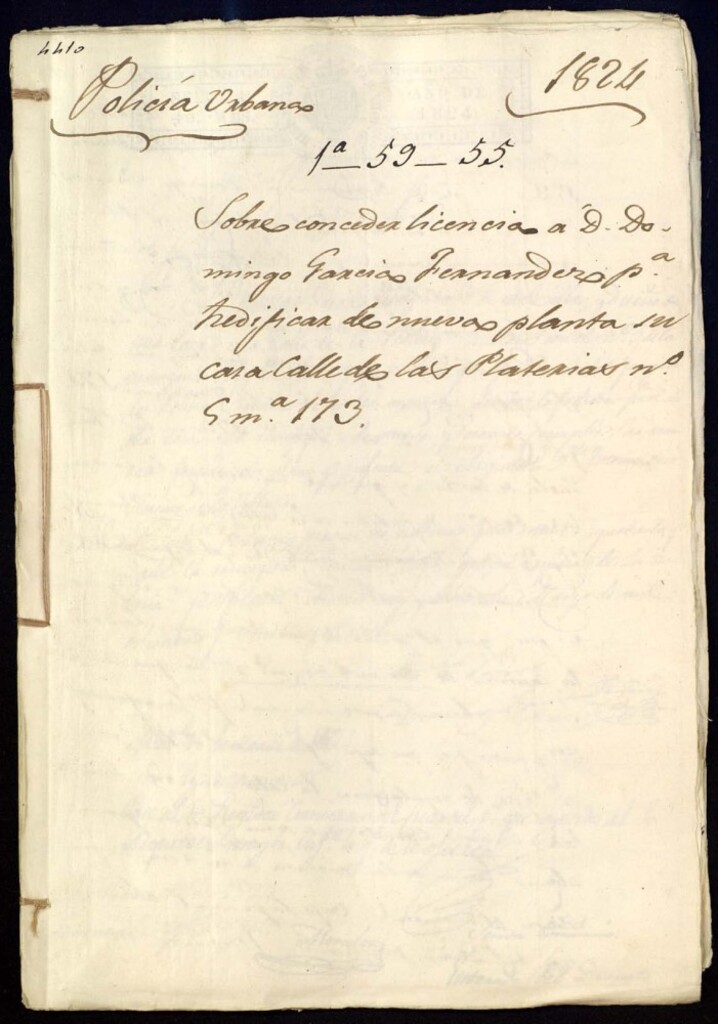 4410
Policía Urbana
1824
1ª — 59 — 55.
Sobre conceder licencia a D. Do-
mingo Garcia Fernandez pª
redificar de nueva planta su
casa Calle de las Platerias nº
5 mª 173.